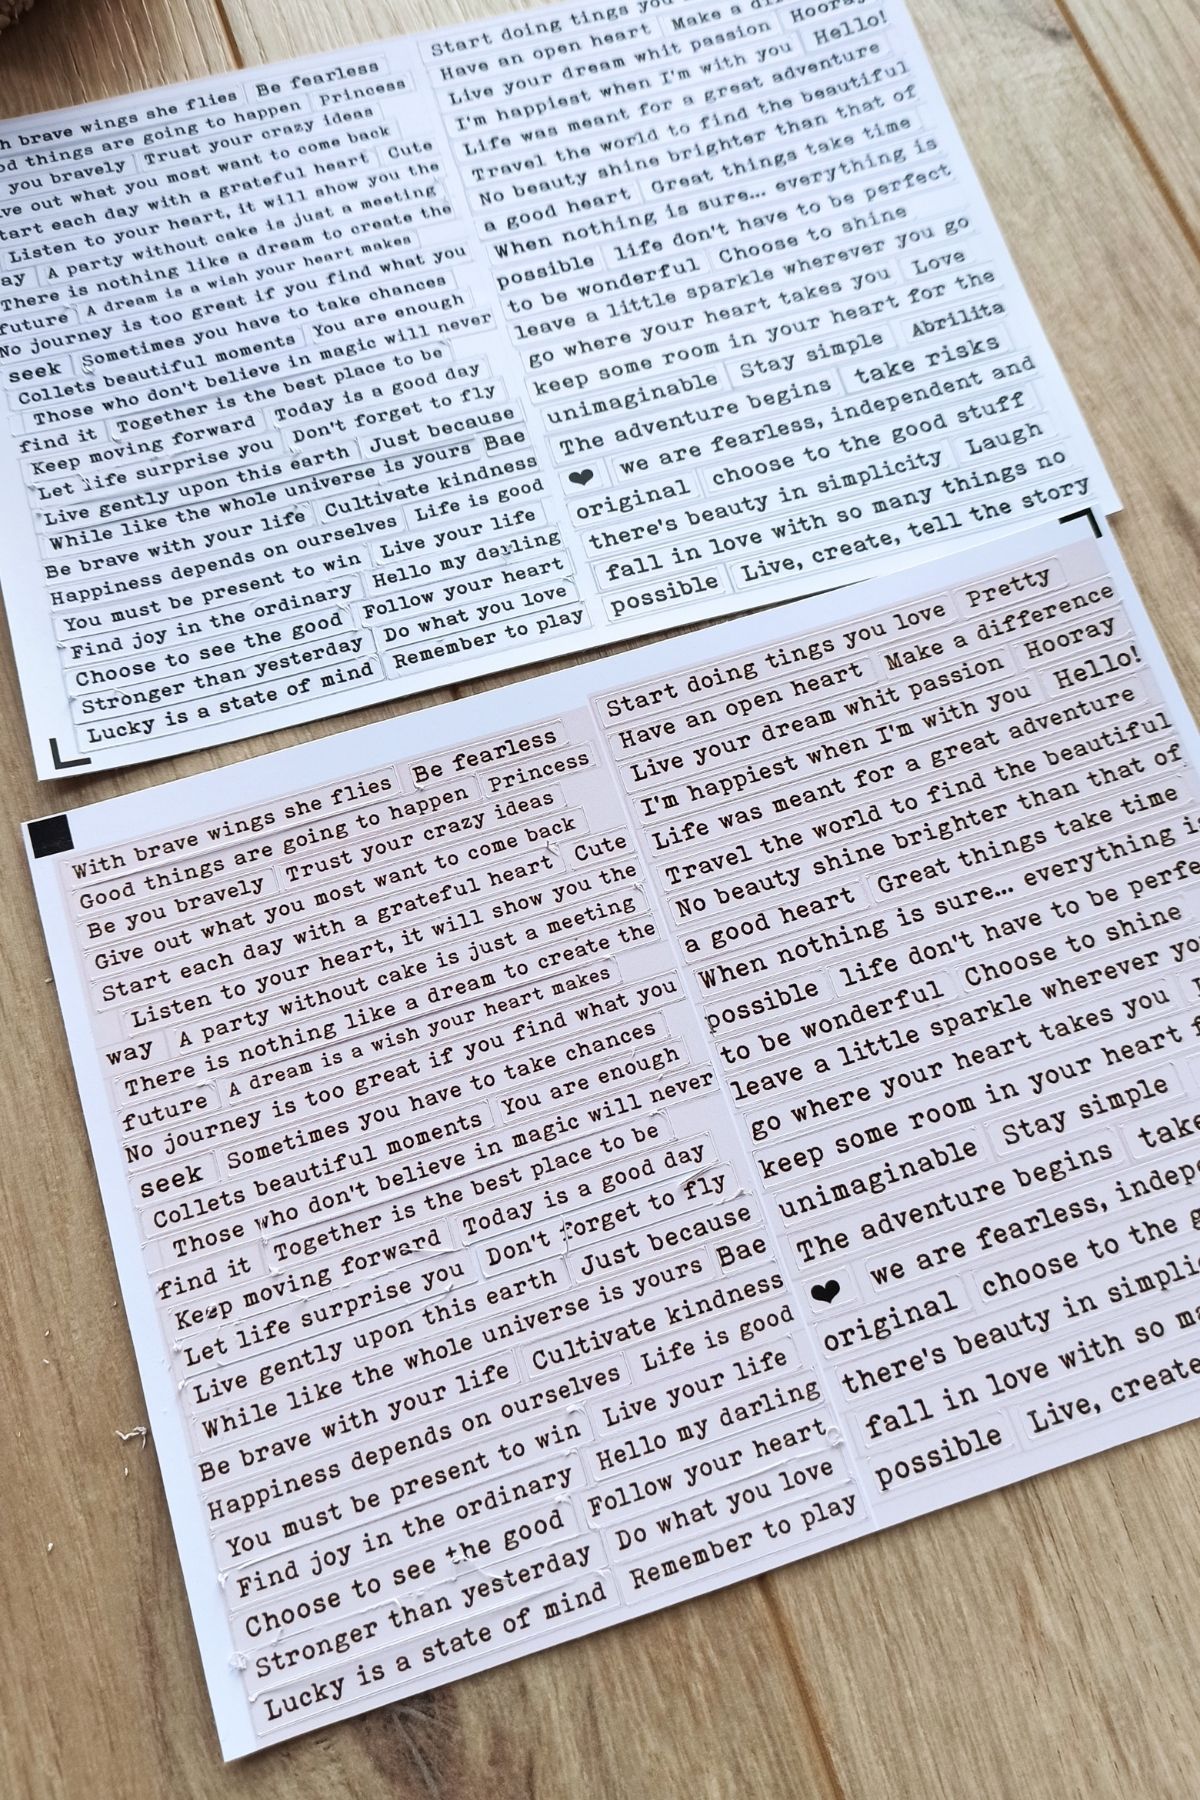 Start doing tings you
Have an open heart Make a
Live your dream whit passion Hooray
I'm happiest when I'm with you Hello!
Life was meant for a great adventure
Travel the world to find the beautiful
No beauty shine brighter than that of
a good heart Great things take time
When nothing is sure... everything is
possible life don't have to be perfect
to be wonderful Choose to shine
leave a little sparkle wherever you go
go where your heart takes you Love
keep some room in your heart for the
unimaginable Stay simple Abrilita
The adventure begins take risks
❤ we are fearless, independent and
original choose to the good stuff
there's beauty in simplicity Laugh
fall in love with so many things no
possible Live, create, tell the story
brave wings she flies Be fearless
things are going to happen Princess
you bravely Trust your crazy ideas
out what you most want to come back
tart each day with a grateful heart Cute
Listen to your heart, it will show you the
ay A party without cake is just a meeting
There is nothing like a dream to create the
future A dream is a wish your heart makes
No journey is too great if you find what you
seek Sometimes you have to take chances
Collets beautiful moments You are enough
Those who don't believe in magic will never
find it Together is the best place to be
Keep moving forward Today is a good day
Let life surprise you Don't forget to fly
Live gently upon this earth Just because
While like the whole universe is yours Bae
Be brave with your life Cultivate kindness
Happiness depends on ourselves Life is good
You must be present to win Live your life
Find joy in the ordinary Hello my darling
Choose to see the good Follow your heart
Stronger than yesterday Do what you love
Lucky is a state of mind Remember to play
With brave wings she flies Be fearless
Good things are going to happen Princess
Be you bravely Trust your crazy ideas
Give out what you most want to come back
Start each day with a grateful heart Cute
Listen to your heart, it will show you the
way A party without cake is just a meeting
There is nothing like a dream to create the
future A dream is a wish your heart makes
No journey is too great if you find what you
seek Sometimes you have to take chances
Collets beautiful moments You are enough
Those who don't believe in magic will never
find it Together is the best place to be
Keep moving forward Today is a good day
Let life surprise you Don't forget to fly
Live gently upon this earth Just because
While like the whole universe is yours Bae
Be brave with your life Cultivate kindness
Happiness depends on ourselves Life is good
You must be present to win Live your life
Find joy in the ordinary Hello my darling
Choose to see the good Follow your heart
Stronger than yesterday Do what you love
Lucky is a state of mind Remember to play
Start doing tings you love Pretty
Have an open heart Make a difference
Live your dream whit passion Hooray
I'm happiest when I'm with you Hello!
Life was meant for a great adventure
Travel the world to find the beautiful
No beauty shine brighter than that of
a good heart Great things take time
When nothing is sure... everything is
possible life don't have to be perfe
to be wonderful Choose to shine
leave a little sparkle wherever yo
go where your heart takes you
keep some room in your heart f
unimaginable Stay simple
The adventure begins take
❤ we are fearless, indep
original choose to the g
there's beauty in simplic
fall in love with so ma
possible Live, create